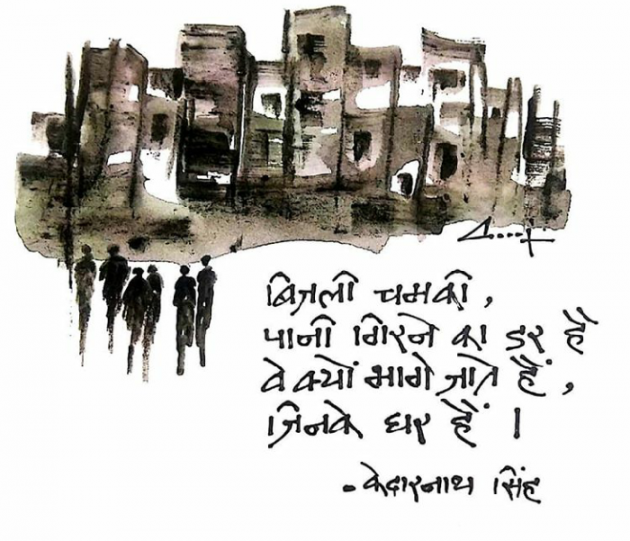 बिजली चमकी,
पानी गिरने का डर है
वे क्यों भागे जाते हैं,
जिनके घर हैं ।
- केदारनाथ सिंह